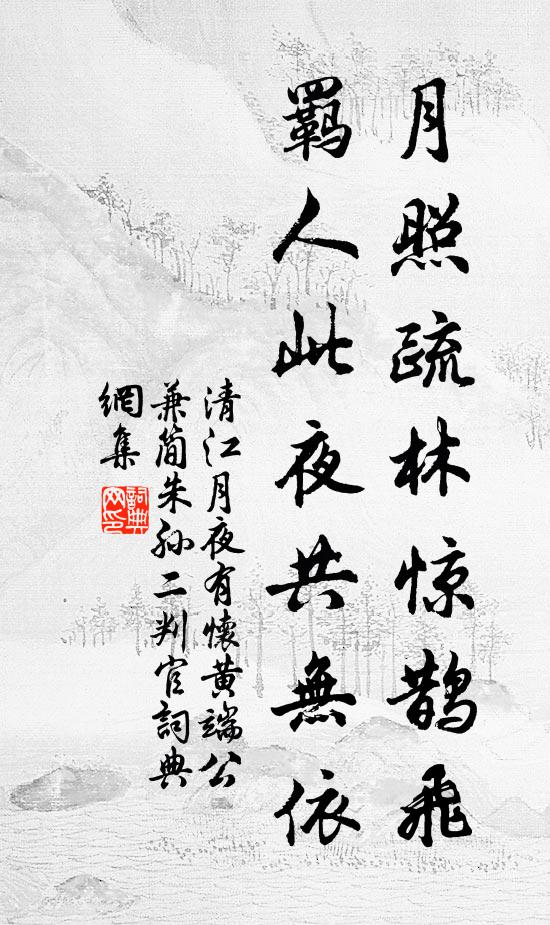 月照疏林惊鹊飛
羈人此夜共無依
清江月夜有懷黄端公
兼简朱孙二判官詞典
網集
詞典
网印